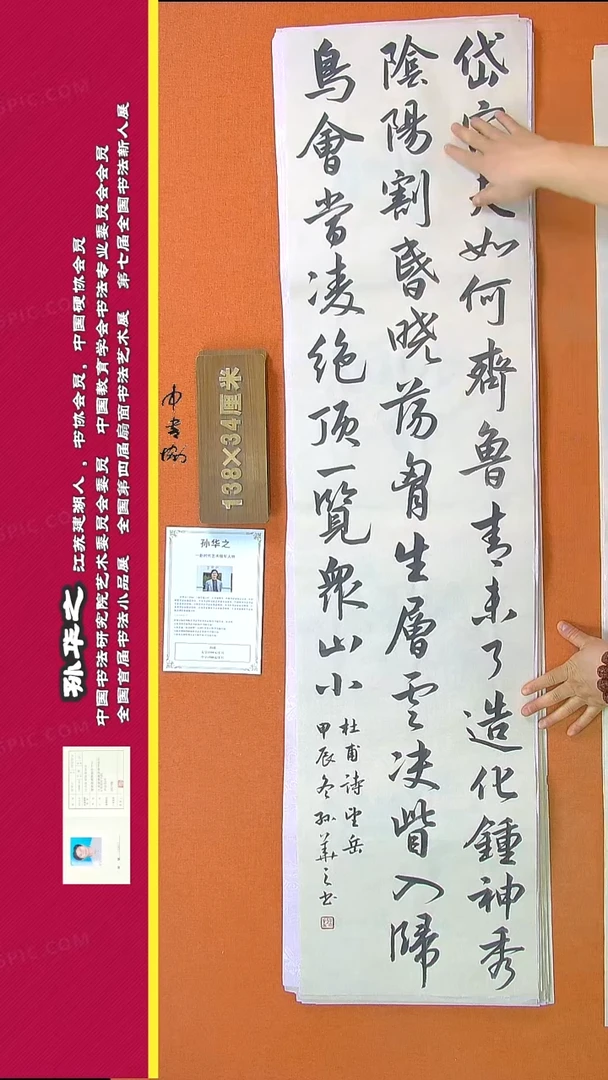 岱宗夫如何齊魯青未了造化鍾神秀
陰陽割昏晓荡胷生層雲决眥入歸
鳥會當凌絕顶一覽眾山小
杜甫詩望岳
甲辰冬孫華之书
138×34厘米
孙华之
孙华之 江苏建湖人，书协会员，中国硬协会员
中国书法研究院艺术委员会委员 中国教育学会书法专业委员会会员
全国首届书法小品展 全国第四届扇面书法艺术展 第七届全国书法新人展